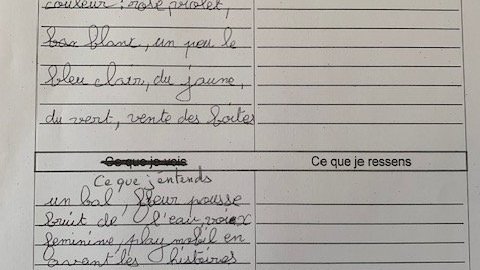 couleur : rose, violet,
blanc, un peu le
bleu clair, du jaune,
du vert, vente des boites
Ce que je vois Ce que je ressens
Ce que j'entends
un bal, fleur pousse
bruit de l'eau, voix
feminine, play mobil en
avant les histoires